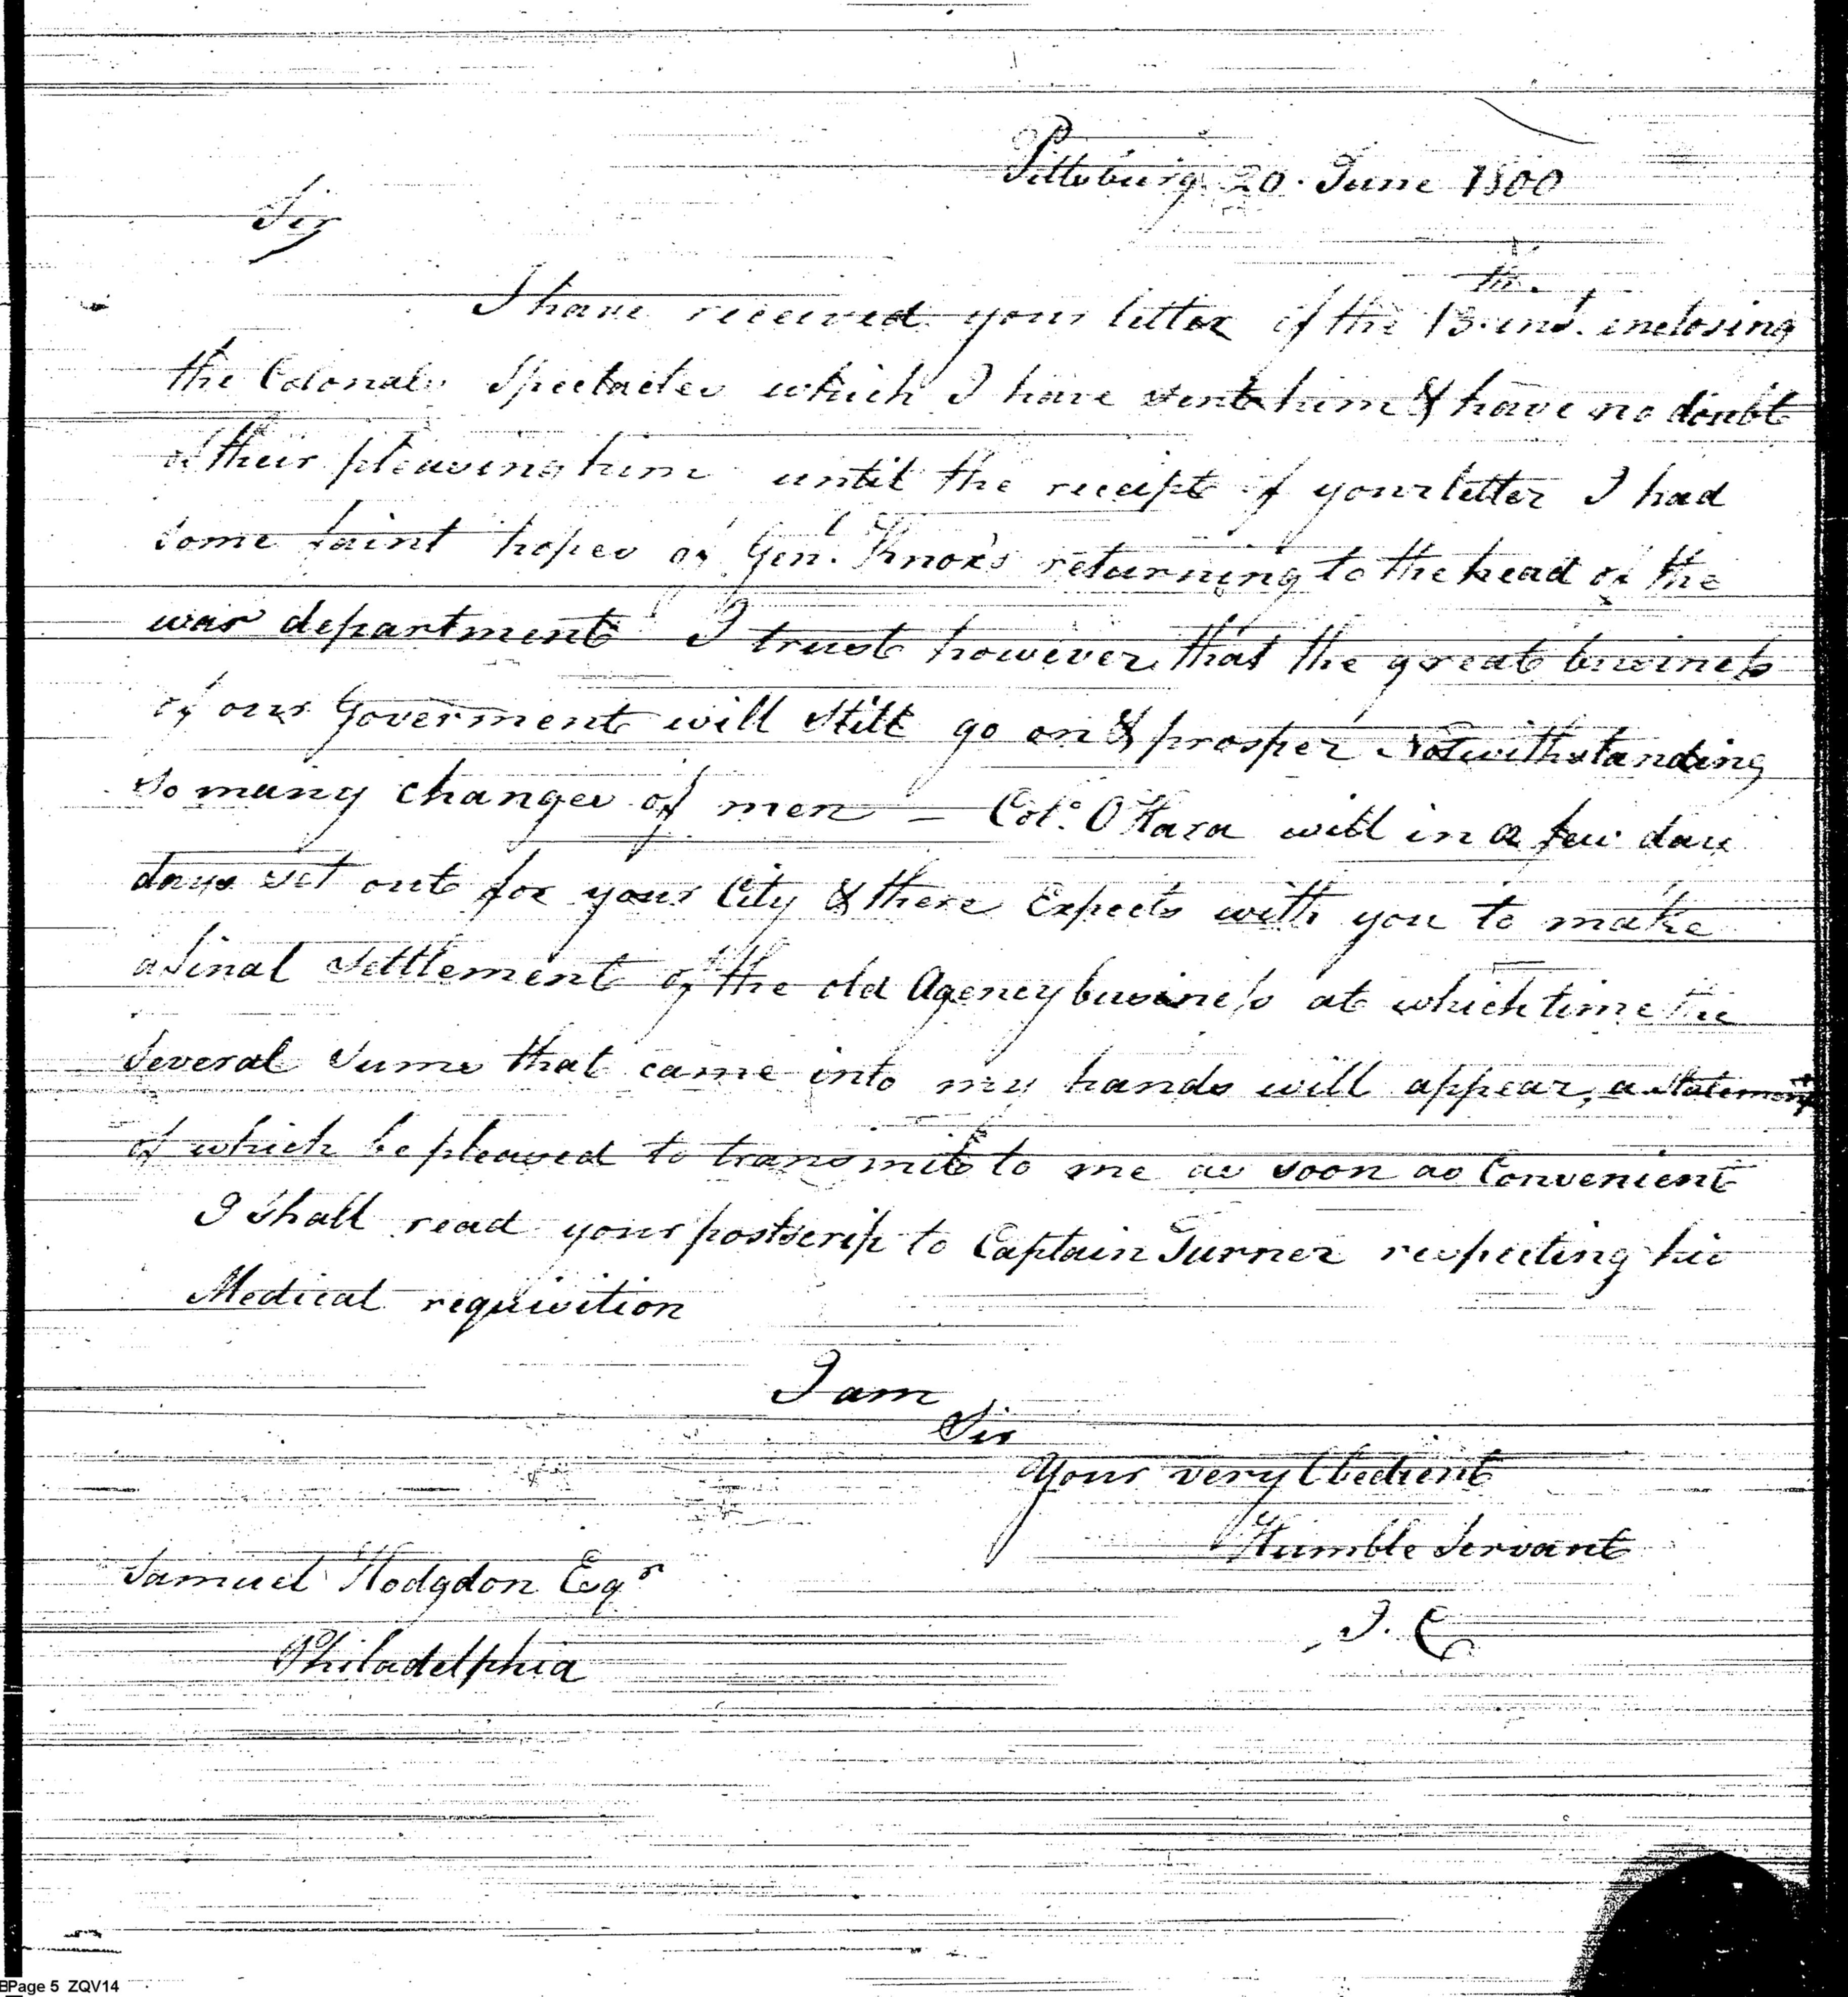 Pittsburg 20. June 1800
Sir
I have received your letter of the 13th. inst. enclosing
the Colonals Spectacles which I have sent him & have no doubt
of their pleasing him until the receipt of your letter I had
some faint hopes of Genl. Knox's returning to the head of the
war department I trust however that the great business
of our Goverment will still go on & prosper Notwithstanding
so many changes of men — Colo. O Hara will in a few day
days set out for your City & there Expects with you to make
a final settlement of the old Agency business at which time the
Several Sums that came into my hands will appear, a statement
of which be pleased to transmit to me as soon as Convenient
I shall read your postscrip to Captain Turner respecting his
Medical requisition
I am
Sir
Your very Obedient
Humble Servant
Samuel Hodgdon Esqr
J. C
Philadelphia
BPage 5 ZQV14